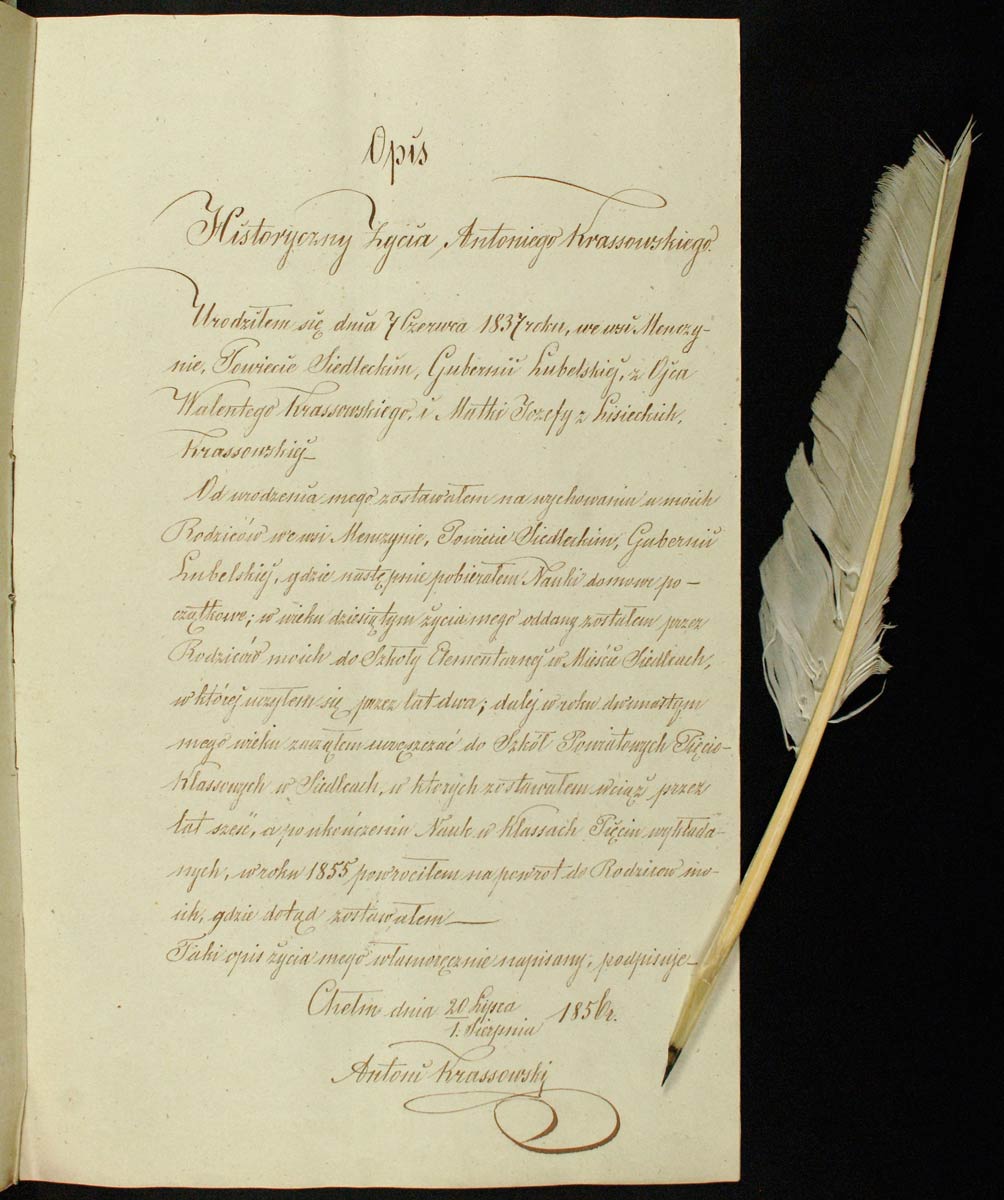 Opis
Historyczny Życia Antoniego Krassowskiego.
Urodziłem się dnia 7 Czerwca 1837 roku, we wsi Menczy-
nie, Powiecie Siedleckim, Gubernii Lubelskiej, z Ojca
Walentego Krassowskiego, i Matki Jozefy z Lisieckich,
Krassowskiej
Od urodzenia mego zostawałem na wychowaniu u moich
Rodziców we wsi Menczynie, Powiecie Siedleckim, Gubernii
Lubelskiej, gdzie następnie pobierałem Nauki domowe po-
czątkowe; w wieku dziesiątym życia mego oddany zostałem przez
Rodziców moich do Szkoły Elementarnej w Mieście Siedlcach,
w której uczyłem się przez lat dwa; dalej w roku dwunastym
mego wieku zacząłem uczęszczać do Szkół Powiatowych Pięcio-
Klassowych w Siedlcach, w których zostawałem wciąż przez
lat sześć, a po ukończeniu Nauk w Klassach Pięciu wykłada-
nych, w roku 1855 powrociłem na powrot do Rodzicow mo-
ich, gdzie dotąd zostawałem —
Taki opis życia mego własnoręcznie napisany, podpisuje —
Chełm dnia 20 Lipca / 1. Sierpnia 1856 r.
Antoni Krassowski